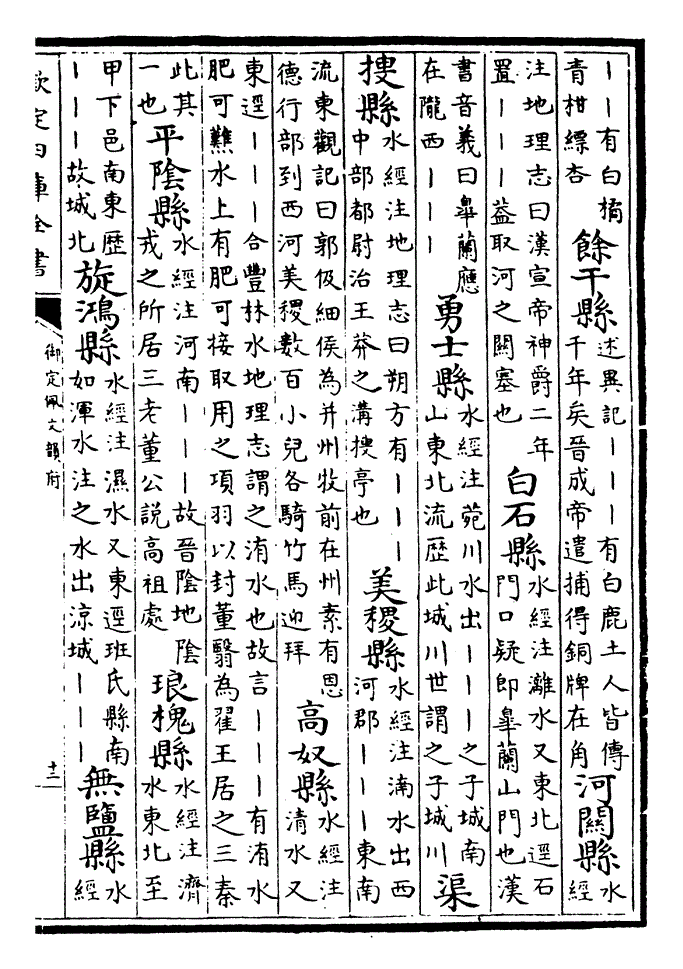 ｜｜有白橘
青柑縹杏
餘干縣
述異記｜｜｜有白鹿土人皆傳
千年矣晉成帝遣捕得銅牌在角
河關縣
水
經
注地理志曰漢宣帝神爵二年
置｜｜｜葢取河之關塞也
白石縣
水經注灕水又東北逕石
門口疑即臯蘭山門也漢
書音義曰臯蘭應
在隴西｜｜｜
勇士縣
水經注苑川水出｜｜｜之子城南
山東北流歷此城川世謂之子城川
渠
搜縣
水經注地理志曰朔方有｜｜｜
中部都尉治王莽之溝搜亭也
美稷縣
水經注湳水出西
河郡｜｜｜東南
流東觀記曰郭伋細侯為并州牧前在州素有恩
德行部到西河美稷數百小兒各騎竹馬迎拜
高奴縣
水經注
清水又
東逕｜｜｜合豐林水地理志謂之洧水也故言｜｜｜有洧水
肥可㸐水上有肥可接取用之項羽以封董翳為翟王居之三秦
此其
一也
平陰縣
水經注河南｜｜｜故晉陰地陰
戎之所居三老董公説高祖處
琅槐縣
水經注濟
水東北至
甲下邑南東歷
｜｜｜故城北
旋鴻縣
水經注濕水又東逕班氏縣南
如渾水注之水出涼城｜｜｜
無鹽縣
水
經
欽定四庫全書
御定佩文韻府
十二